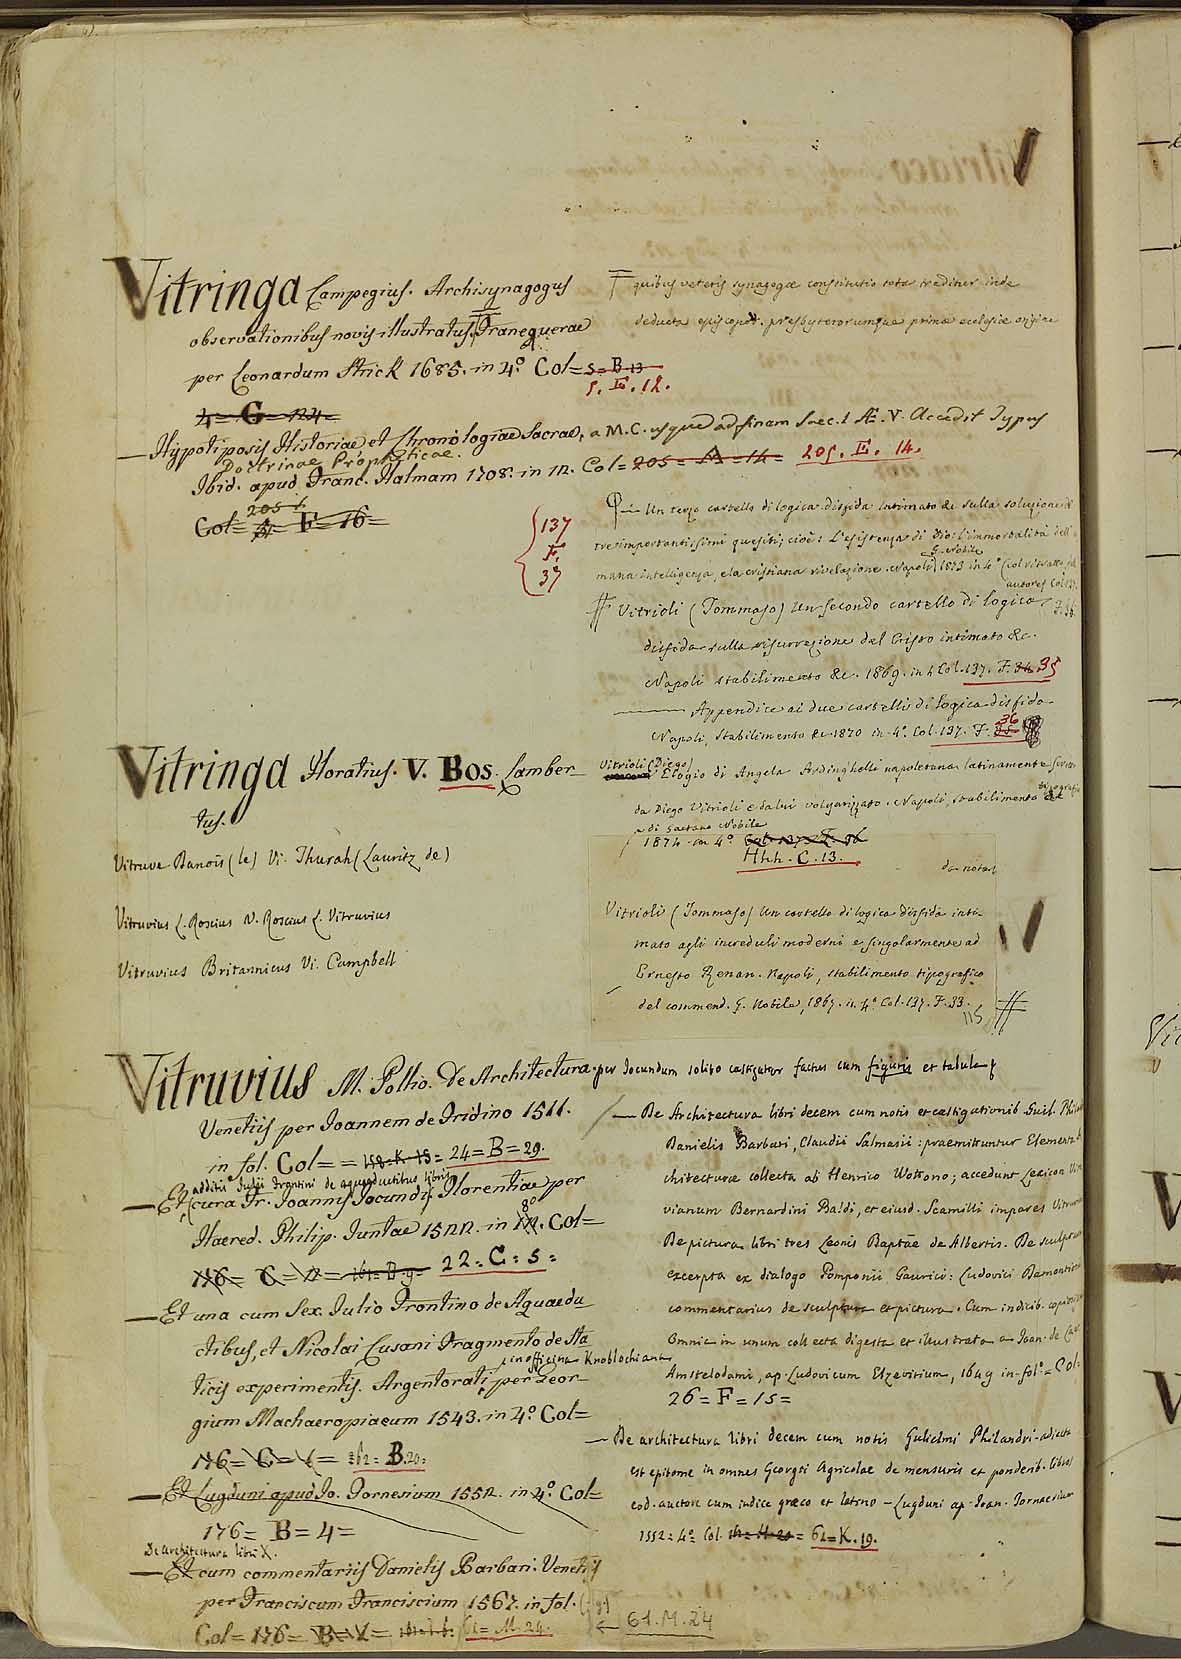 Vitringa Campegius. Archisynagogus
observationibus novis illustratus. Franequerae
per Leonardum Strick 1685. in 4.º Col= 5=B=13
5. E. 12.
4= G= 24=
quibus veteris synagogæ constitutio tota traditur inde
deducta episcopor. presbyterorumque primæ ecclesiæ origine
— Hypotiposis Historiae et Chronologiae Sacrae, a M.C. usque ad finem Saec. I Æ. V. Accedit Typus
Doctrinae Propheticae.
Ibid. apud Franc. Halmam 1708. in 12. Col= 205= A =14= 205. E. 14.
205
Col= F=16=
137
F.
37
— Un terzo cartello di logica disfida intimato &c sulla soluzione di
tre importantissimi quesiti; cioè: L'esistenza di Dio: l'immortalità dell'
G. Nobile
mana intelligenza, e la cristiana rivelazione. Napoli, 1873 in 4.º (col ritratto del
autore) Col. 137.
F. 36.
Vitrioli (Tommaso) Un secondo cartello di logica
disfida sulla risurrezione del Cristo intimato &c.
Napoli stabilimento &c. 1869. in 4 Col. 137. F. 34. 35
— Appendice ai due cartelli di logica disfida
Napoli, Stabilimento &c 1870 in 4.º Col. 137. F. 35 36
Vitringa Horatius. V. Bos. Lamber
tus.
Vitrioli (Diego)
Elogio di Angela Ardinghelli napoletana latinamente
da Diego Vitrioli e da lui volgarizzato. Napoli, stabilimento tipografico
di Gaetano Nobile
1874 in 4.º Col. 137. F. 36
Hhh. C. 13.
Vitruve Danois (le) Vi. Thurah (Lauritz de)
Vitruvius L. Roscius V. Roscius L. Vitruvius
Vitruvius Britannicus Vi. Campbell
da notar
Vitrioli (Tommaso) Un cartello di logica disfida inti-
mato agli increduli moderni e singolarmente ad
Ernesto Renan. Napoli, stabilimento tipografico
del commend. G. Nobile, 1867. in 4.º Col. 137. F. 33.
115
Vitruvius M. Pollio. De Architectura per Jocundum solito castigatior factus cum figuris et tabula
Venetiis per Joannem de Tridino 1511.
in fol. Col= = 158=K=15= 24=B=29.
additis Julii Frontini de aquaeductibus libris
— Et cura Fr. Joannis Jocundi, Florentiae per
Haered. Philip. Juntae 1522. in 12. 8º Col=
176= C=12= 161=B.9= 22=C=5=
— Et una cum Sex. Julio Frontino de Aquaedu
ctibus, et Nicolai Cusani Fragmento de Sta
in officina Knoblochiana
ticis experimentis. Argentorati, per Geor-
gium Machaeropiaeum 1543. in 4.º Col=
176= C= = 162= B.20=
— Et Lugduni apud Jo. Tornesium 1552. in 4.º Col=
176= B=4=
De Architectura libri X.
— Et cum commentariis Danielis Barbari. Venetiis
per Franciscum Franciscium 1567. in fol.
Col= 176= B= = 61= M.24.
← 61.M.24
— De Architectura libri decem cum notis et castigationib. Guil. Philandri
Danielis Barbari, Claudii Salmasii: praemittuntur Elementa
chitecturæ collecta ab Henrico Wottono; accedunt Lexicon Vitru
vianum Bernardini Baldi, et eiusd. Scamilli impares Vitruviani
De pictura libri tres Leonis Baptæ de Albertis. De sculptura
excerpta ex dialogo Pomponii Gaurici: Ludovici Demontiosi
commentarius de sculptura et pictura. Cum indicib.
Omnia in unum collecta digesta et illustrata a Joan. de Laet
Amstelodami, ap. Ludovicum Elzevirium, 1649 in-folº=Col:
26=F=15=
— De architectura libri decem cum notis Gulielmi Philandri adjecta
est epitome in omnes Georgii Agricolae de mensuris et ponderib. libros
eod. auctore cum indice græco et latino — Lugduni ap. Joan. Tornaesium
1552=4º= Col. 61=K.19.